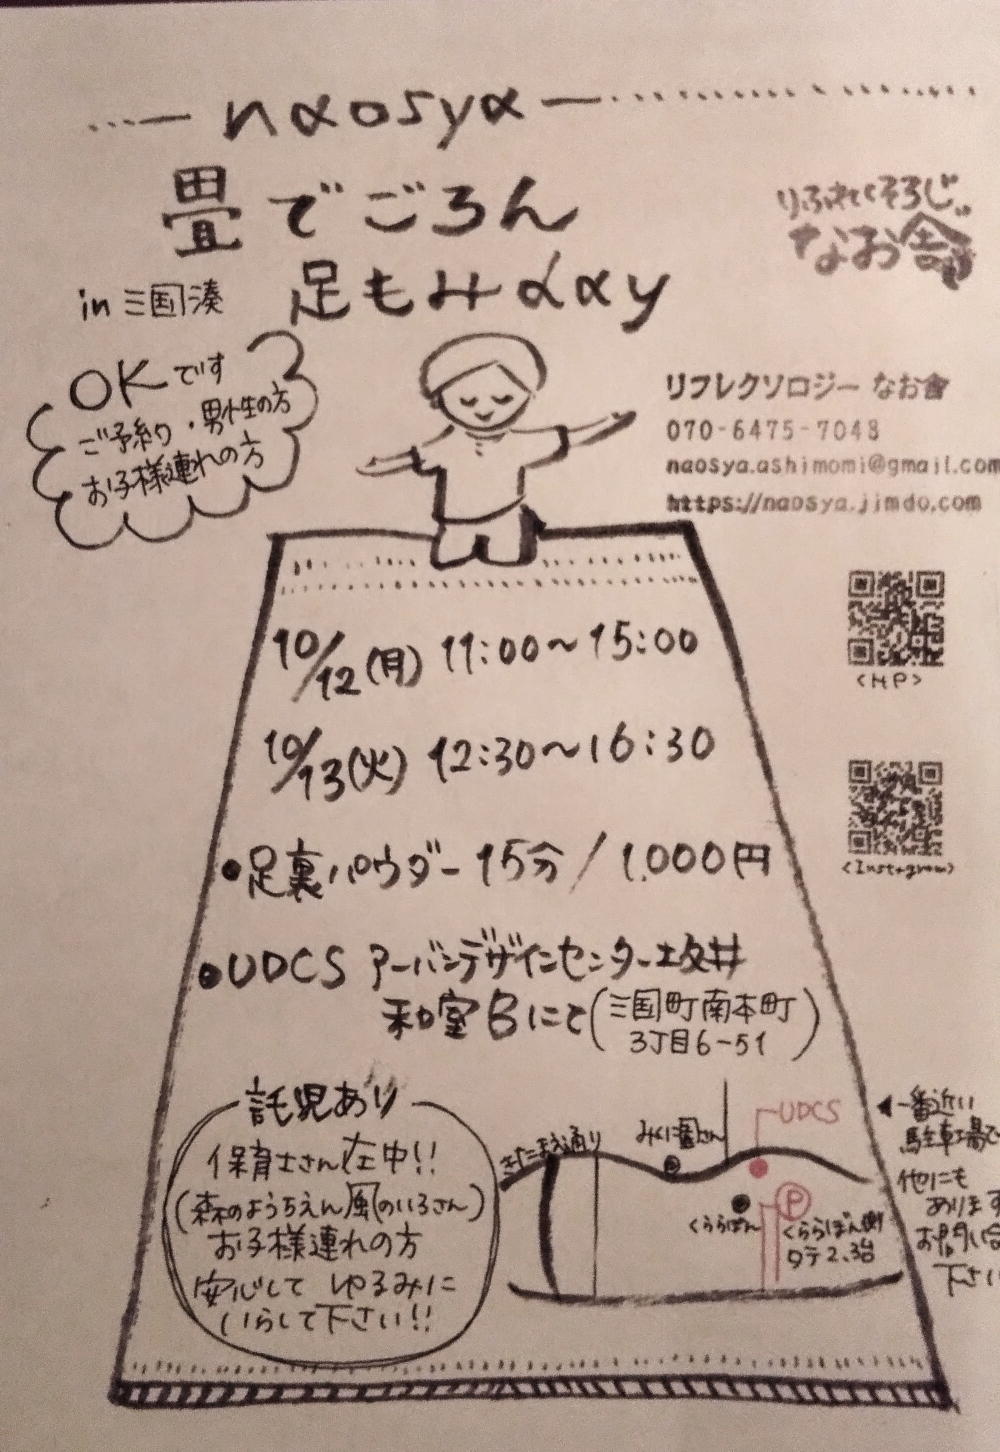 naosya
畳でごろん
足もみday
in 三国湊
りふれくそろじー
なお舎
OKです
ご予約・男性の方
お子様連れの方
リフレクソロジー なお舎
070-6475-7048
naosya.ashimomi@gmail.com
https://naosya.jimdo.com
<HP>
<Instagram>
10/12(月) 11:00~15:00
10/13(火) 12:30~16:30
●足裏パウダー 15分/1,000円
●UDCS アーバンデザインセンター坂井
和室Bにて(三国町南本町
3丁目6-51)
託児あり
保育士さん在中!!
(森のようちえん風のいろさん)
お子様連れの方
安心して ゆるみに
いらして下さい!!
きたまえ通り
みくに園さん
UDCS
くららぼん
P
くららぼん側
タテ2、3台
◀一番近い
駐車場で
他にも
あります
お問い合
下さい